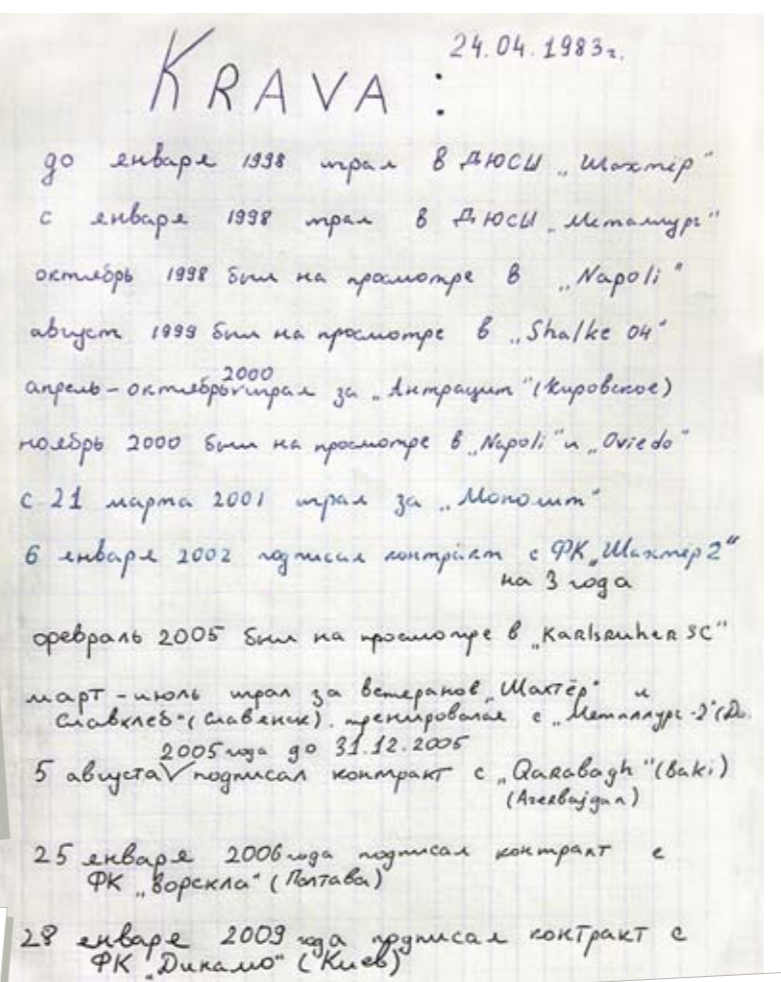 24.04.1983г.
KRAVA :
до января 1998 играл в ДЮСШ „Шахтёр"
с января 1998 играл в ДЮСШ „Металлург"
октябрь 1998 был на просмотре в „Napoli"
август 1999 был на просмотре в „Shalke 04"
2000
апрель - октябрь играл за „Антрацит" (Кировское)
ноябрь 2000 был на просмотре в „Napoli" и „Oviedo"
с 21 марта 2001 играл за „Монолит"
6 января 2002 подписал контракт с ФК „Шахтёр 2"
на 3 года
февраль 2005 был на просмотре в „Karlsruher SC"
март - июль играл за ветеранов „Шахтёр" и
Славхлеб" (Славянск). тренировался с „Металлург-2" (До.
2005 года до 31.12.2005
5 августа подписал контракт с „Qarabagh" (Baki)
(Azerbajgan)
25 января 2006 года подписал контракт с
ФК „Ворскла" (Полтава)
28 января 2009 года подписал контракт с
ФК „Динамо" (Киев)